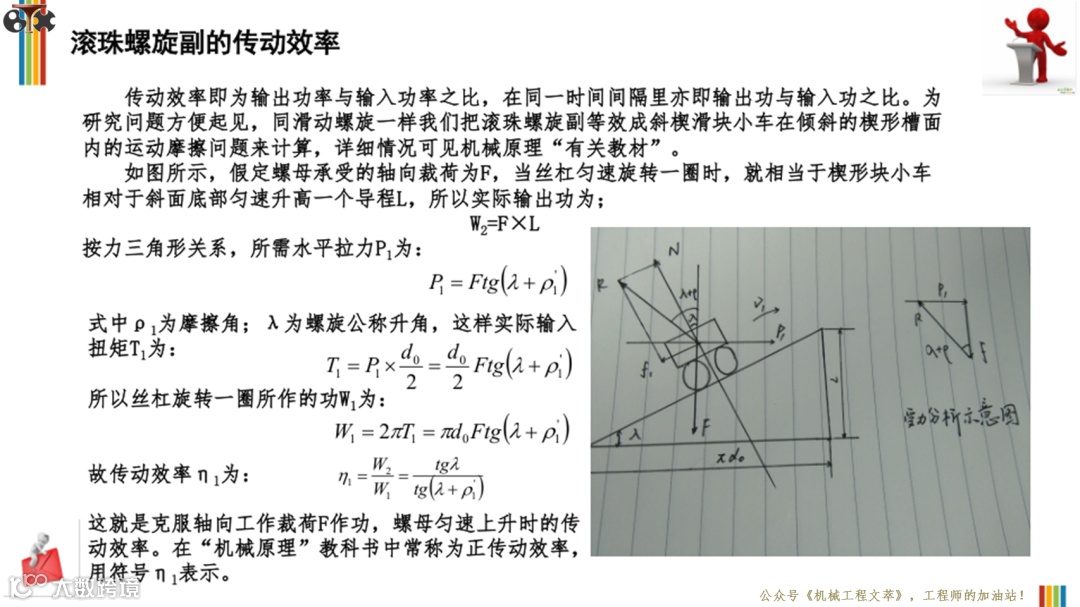 滚珠螺旋副的传动效率
传动效率即为输出功率与输入功率之比，在同一时间间隔里亦即输出功与输入功之比。为
研究问题方便起见，同滑动螺旋一样我们把滚珠螺旋副等效成斜楔滑块小车在倾斜的楔形槽面
内的运动摩擦问题来计算，详细情况可见机械原理“有关教材”。
如图所示，假定螺母承受的轴向裁荷为F，当丝杠匀速旋转一圈时，就相当于楔形块小车
相对于斜面底部匀速升高一个导程L，所以实际输出功为；
W₂=F×L
按力三角形关系，所需水平拉力P₁为：
P₁ = Ftg(λ + ρ₁')
式中ρ₁为摩擦角；λ为螺旋公称升角，这样实际输入
扭矩T₁为：
T₁ = P₁ × d₀/2 = d₀/2 Ftg(λ + ρ₁')
所以丝杠旋转一圈所作的功W₁为：
W₁ = 2πT₁ = πd₀Ftg(λ + ρ₁')
故传动效率η₁为：
η₁ = W₂/W₁ = tgλ/tg(λ + ρ₁')
这就是克服轴向工作裁荷F作功，螺母匀速上升时的传
动效率。在“机械原理”教科书中常称为正传动效率，
用符号η₁表示。
N
R
λ+ρ
λ
v₁
P₁
f₁
F
λ
πd₀
P₁
R
F
受力分析示意图
大数跨境
公众号《机械工程文萃》，工程师的加油站！